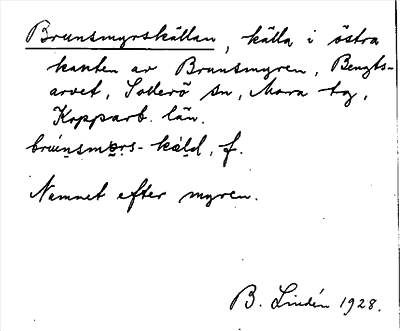 Brunsmyrskällan, källa i östra
kanten av Brunsmyren, Bengts-
arvet, Sollerö sn, Mora tg,
Kopparb. län.
brúnsmọrs-káld, f.
Namnet efter myren.
B. Lindén 1928.